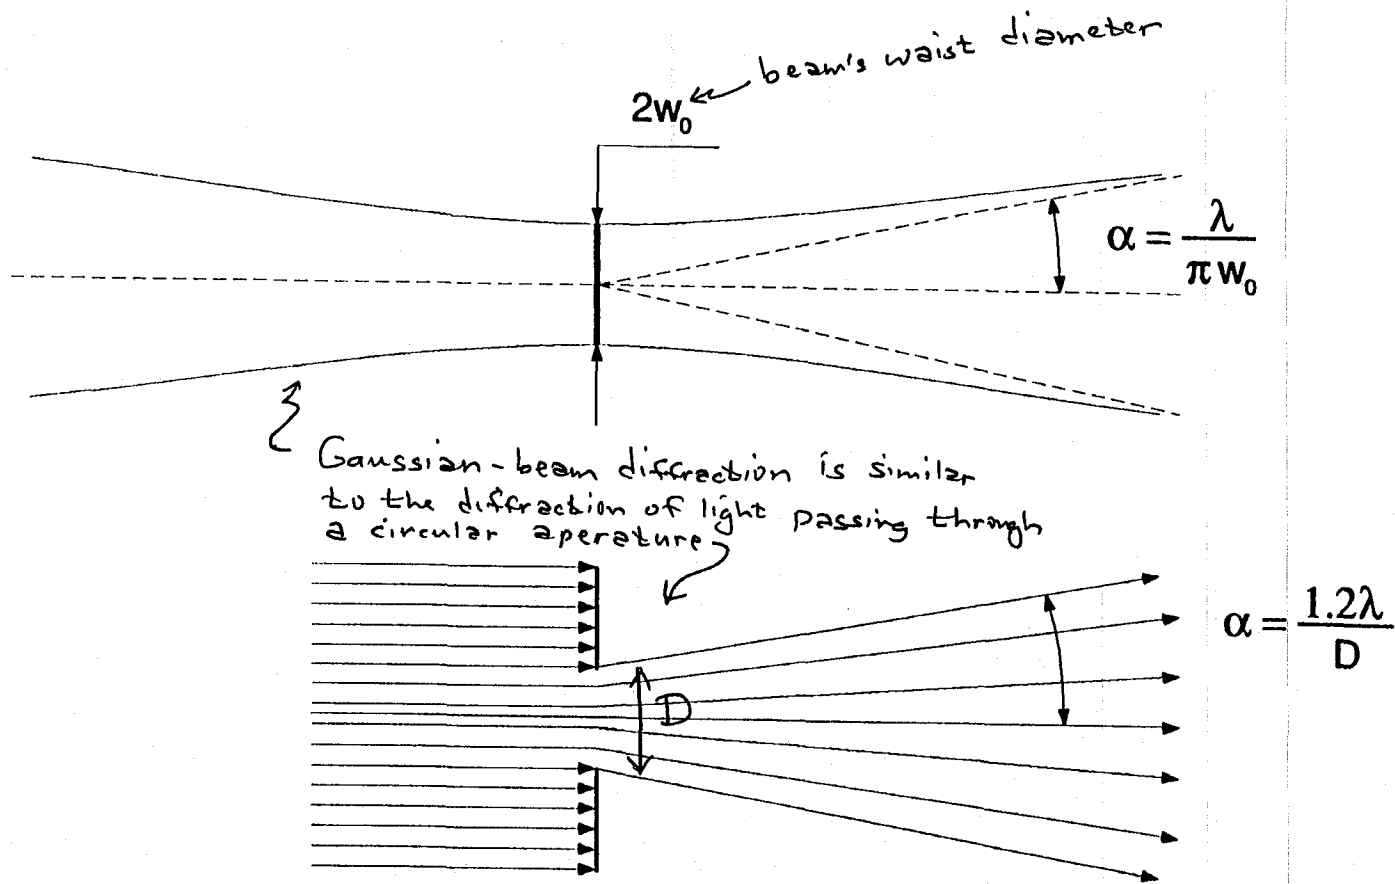 beam's waist diameter
2w₀
α = λ / π w₀
Gaussian-beam diffraction is similar
to the diffraction of light passing through
a circular aperature
D
α = 1.2λ / D